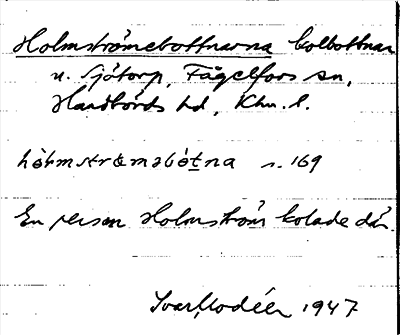 Holmströmebottnarna kolbottnar
u. Sjötorp, Fågelfors sn,
Handbörds hd, Klm. l.
hòlmstrømabót̲na s. 169
En person Holmström kolade där.
Ivar Modéer 1947